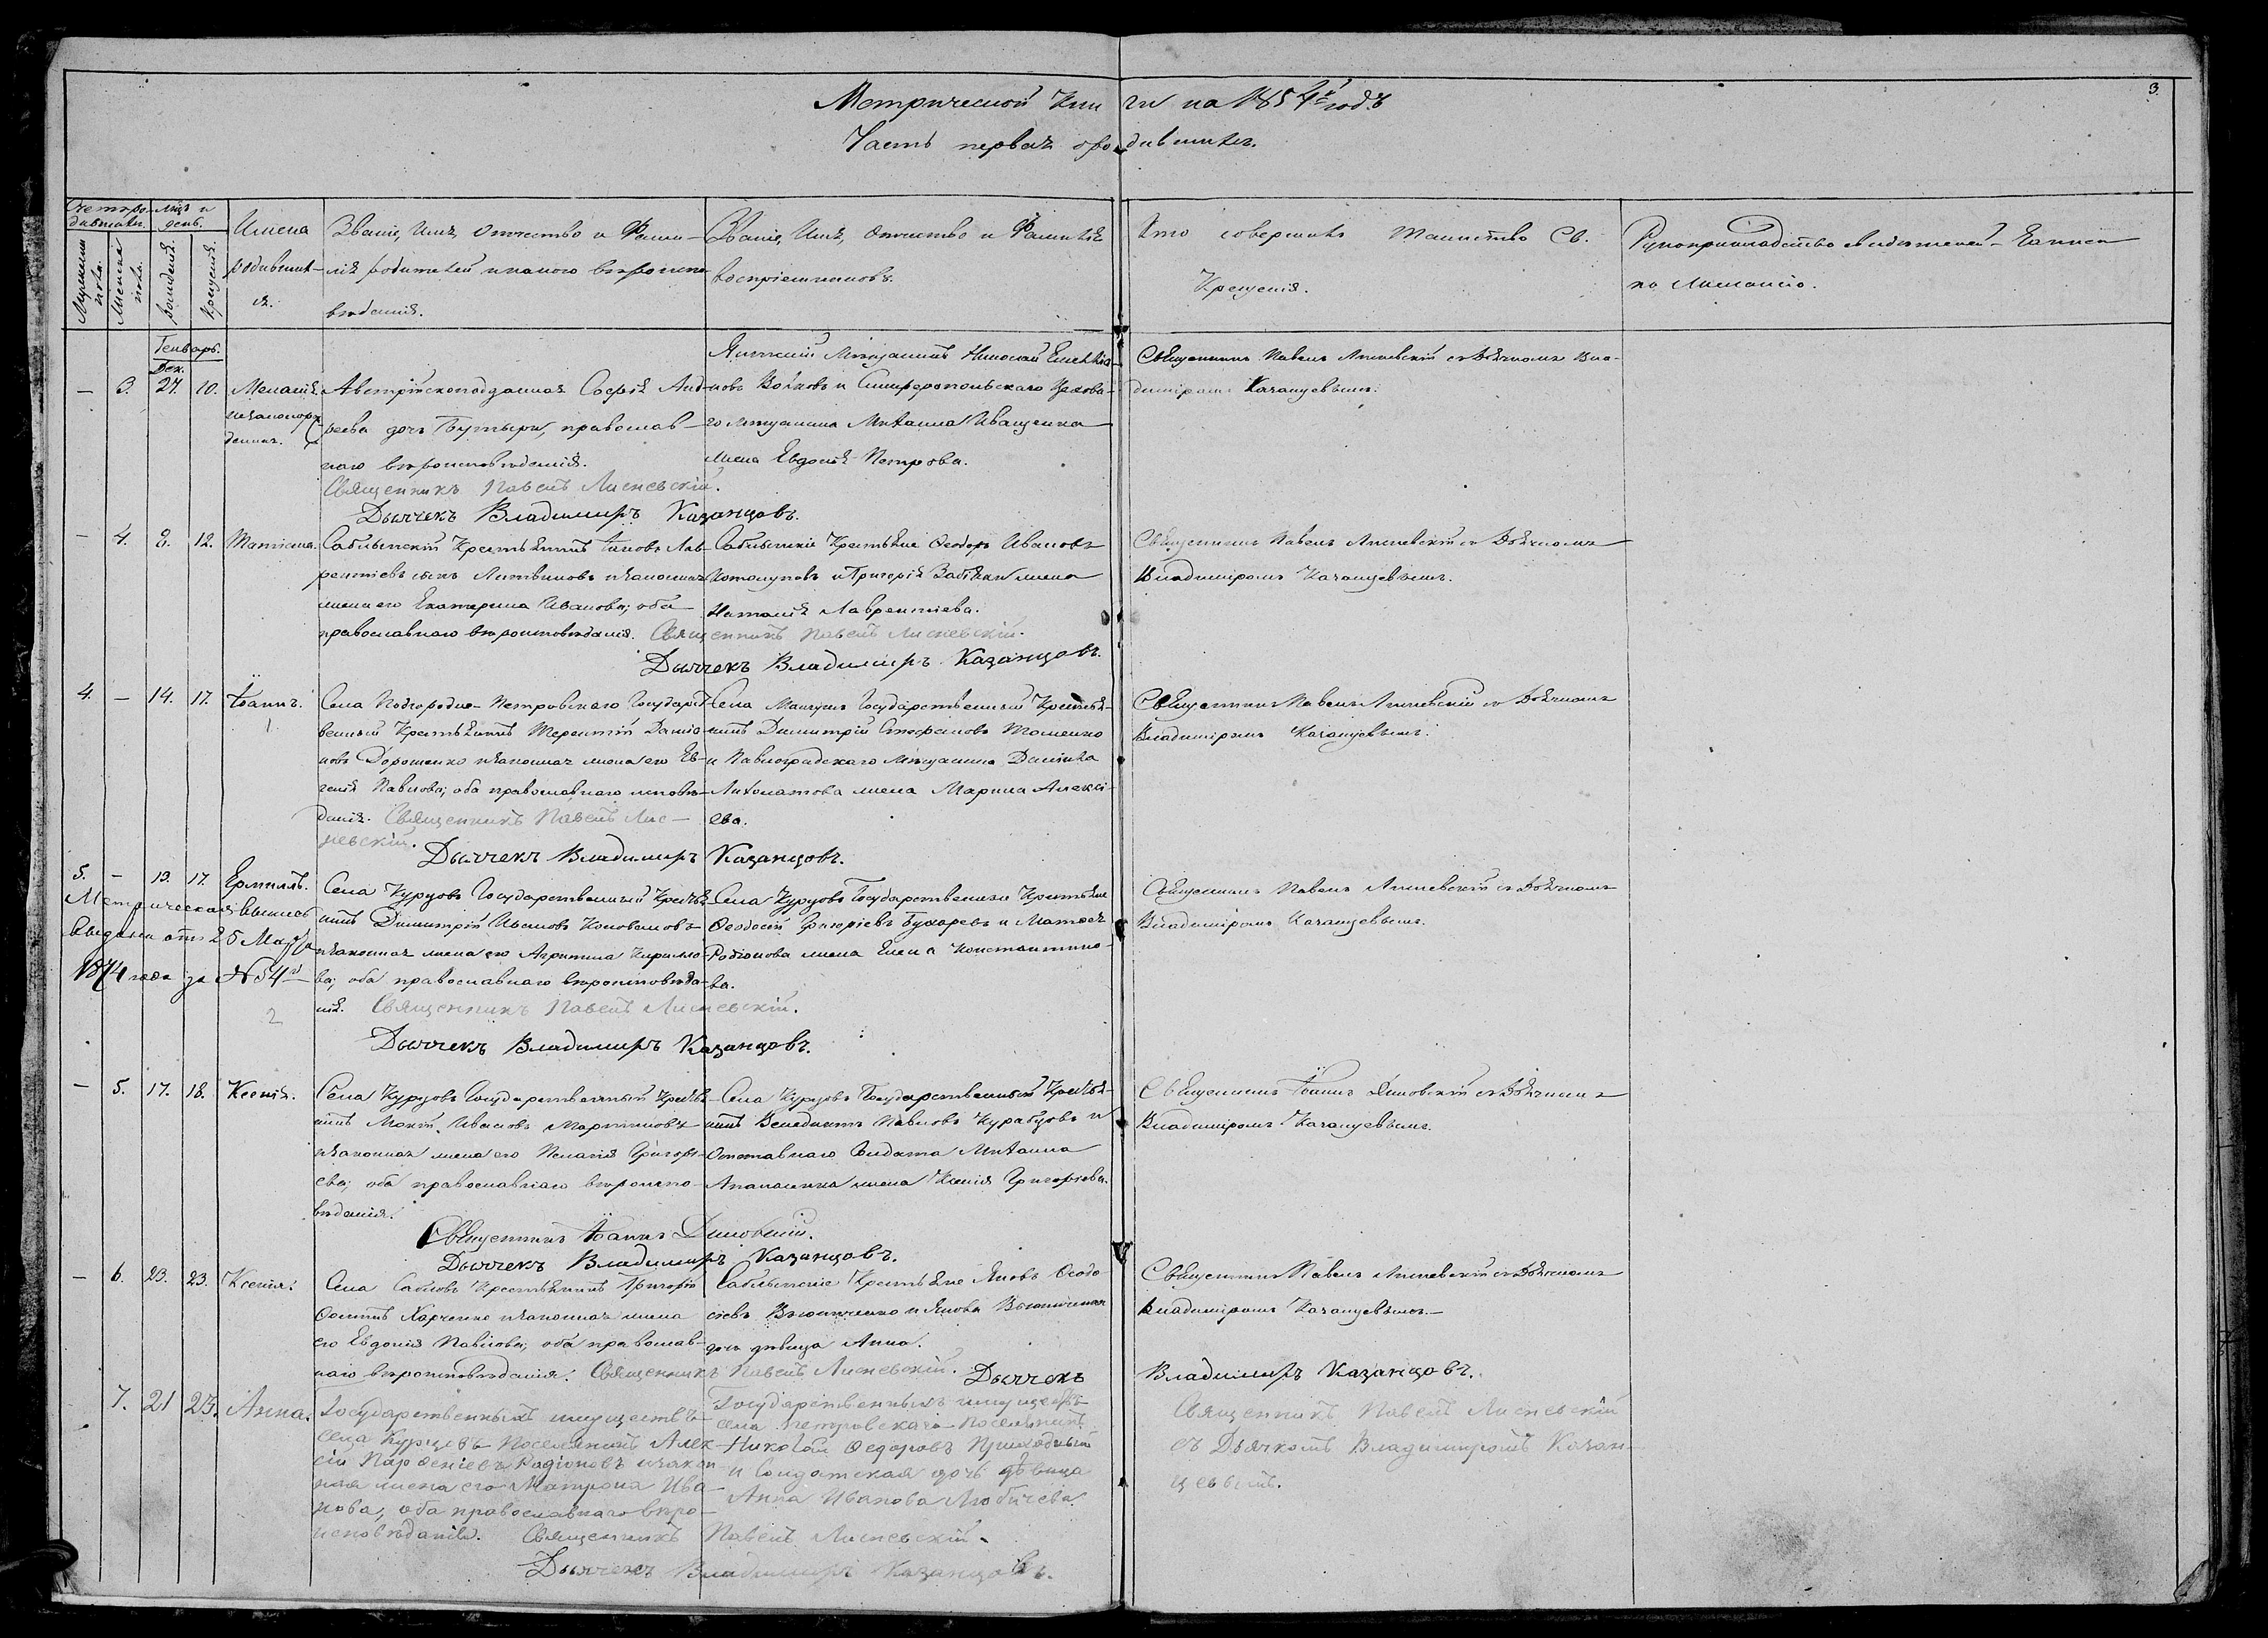 3.
Метрической Книги на 1854й годъ
Часть первая о родившихся.
Счетъ родившихся.
Мужеска пола.
Женска пола.
Мѣсяцъ и день.
рожденія.
Крещенія.
Имена родившихся.
Званіе, Имя, Отчество и Фами-
лія родителей и какого вѣроиспо-
вѣданія.
Званіе, Имя, Отчество и Фамилія
воспріемниковъ.
Кто совершилъ таинство Св.
Крещенія.
Рукоприкладство свидѣтелей Записи
по желанію.
Генварь.
Дек.
— 3. 27. 10. Меланія
незаконорожденная.
Австрійскоподданная Софія Анд-
реева дочь Бутырь, православ-
наго вѣроисповѣданія.
Священникъ Павелъ Лисневскій.
Дьячекъ Владимиръ Казанцовъ.
Мѣщанинъ Николай
новъ Волковъ и Симферопольскаго
го мѣщанина Михаила Иващенка
жена Евдокія Петрова.
Священникъ Павелъ Лисневскій съ Дьячкомъ Вла-
диміромъ Казанцевымъ.
— 4. 8. 12. Татіана.
Саблынскій Крестьянинъ Іаковъ Лав-
рентіевъ сынъ Литвиновъ и законная
жена его Екатерина Иванова; оба
православнаго вѣроисповѣданія. Священникъ Павелъ Лисневскій.
Дьячекъ Владимиръ Казанцовъ.
Саблынскіе Крестьяне Ѳеодоръ Ивановъ
и Григорія жена
Наталія Лаврентіева.
Священникъ Павелъ Лисневскій съ Дьячкомъ
Владиміромъ Казанцевымъ.
4. — 14. 17. Іоаннъ.
1
Села Подгородно-Петровскаго Государст-
венный Крестьянинъ Терентій Даніи-
ловъ Дорошенко и законная жена его Ев-
генія Павлова; оба православнаго исповѣ-
данія. Священникъ Павелъ Лис-
невскій.
Дьячекъ Владимиръ Казанцовъ.
Села Мангушъ Государственный Крестья-
нинъ Димитрій Стефановъ Томенко
и Павлоградскаго мѣщанина Даніила
жена Марина Алексі-
ева.
Священникъ Павелъ Лисневскій съ Дьячкомъ
Владиміромъ Казанцевымъ.
5. — 13. 17. Ермилъ.
Метрическая выпись
выдана отъ 25 Марта
1874 года за № 54м
2
Села Курцовъ Государственный Крестья-
нинъ Димитрій Ивановъ Коноваловъ
и законная жена его Агрипина Кирилло-
ва; оба православнаго вѣроисповѣда-
нія. Священникъ Павелъ Лисневскій.
Дьячекъ Владимиръ Казанцовъ.
Села Курцовъ Государственные Крестьяне
Ѳеодосій Григоріевъ Бухаревъ и Матвея
Родіонова жена Елена Константино-
ва.
Священникъ Павелъ Лисневскій съ Дьячкомъ
Владиміромъ Казанцевымъ.
— 5. 17. 18. Ксенія.
Села Курцовъ Государственный Крестья-
нинъ Мокій Ивановъ Мартиновъ
и законная жена его Пелагія Григорі-
ева; оба православнаго вѣроиспо-
вѣданія.
Священникъ Іоаннъ
Дьячекъ Владимиръ Казанцовъ.
Села Курцовъ Государственный Крестья-
нинъ Венедиктъ Павловъ Курабцовъ и
Отставнаго Солдата Михаила
Апанасенка жена Ксенія Григоріева.
Священникъ Іоаннъ съ Дьячкомъ
Владиміромъ Казанцевымъ.
— 6. 23. 23. Ксенія.
Села Сабловъ Крестьянинъ Григорій
Осиповъ Харченко и законная жена
его Евдокія Павлова; оба православ-
наго вѣроисповѣданія. Священникъ Павелъ Лисневскій. Дьячекъ
Владимиръ Казанцовъ.
Саблынскіе Крестьяне Яковъ Ѳеодо-
сіевъ и Якова
дочь дѣвица Анна.
Священникъ Павелъ Лисневскій съ Дьячкомъ
Владиміромъ Казанцевымъ.—
7. 21 23. Анна.
Государственныхъ имуществъ
села Курцовъ Поселянинъ Алек-
сій Парѳеніевъ Радіоновъ и закон-
ная жена его Матрона Ива-
нова, оба православнаго вѣро-
исповѣданія. Священникъ Павелъ Лисневскій.
Дьячекъ Владимиръ Казанцовъ.
Государственныхъ имуществъ
села Петровскаго Поселянинъ
Николай Ѳедоровъ
и Солдатская дочь дѣвица
Анна Иванова Любичева.
Священникъ Павелъ Лисневскій
съ Дьячкомъ Владимиромъ Казан-
цевымъ.